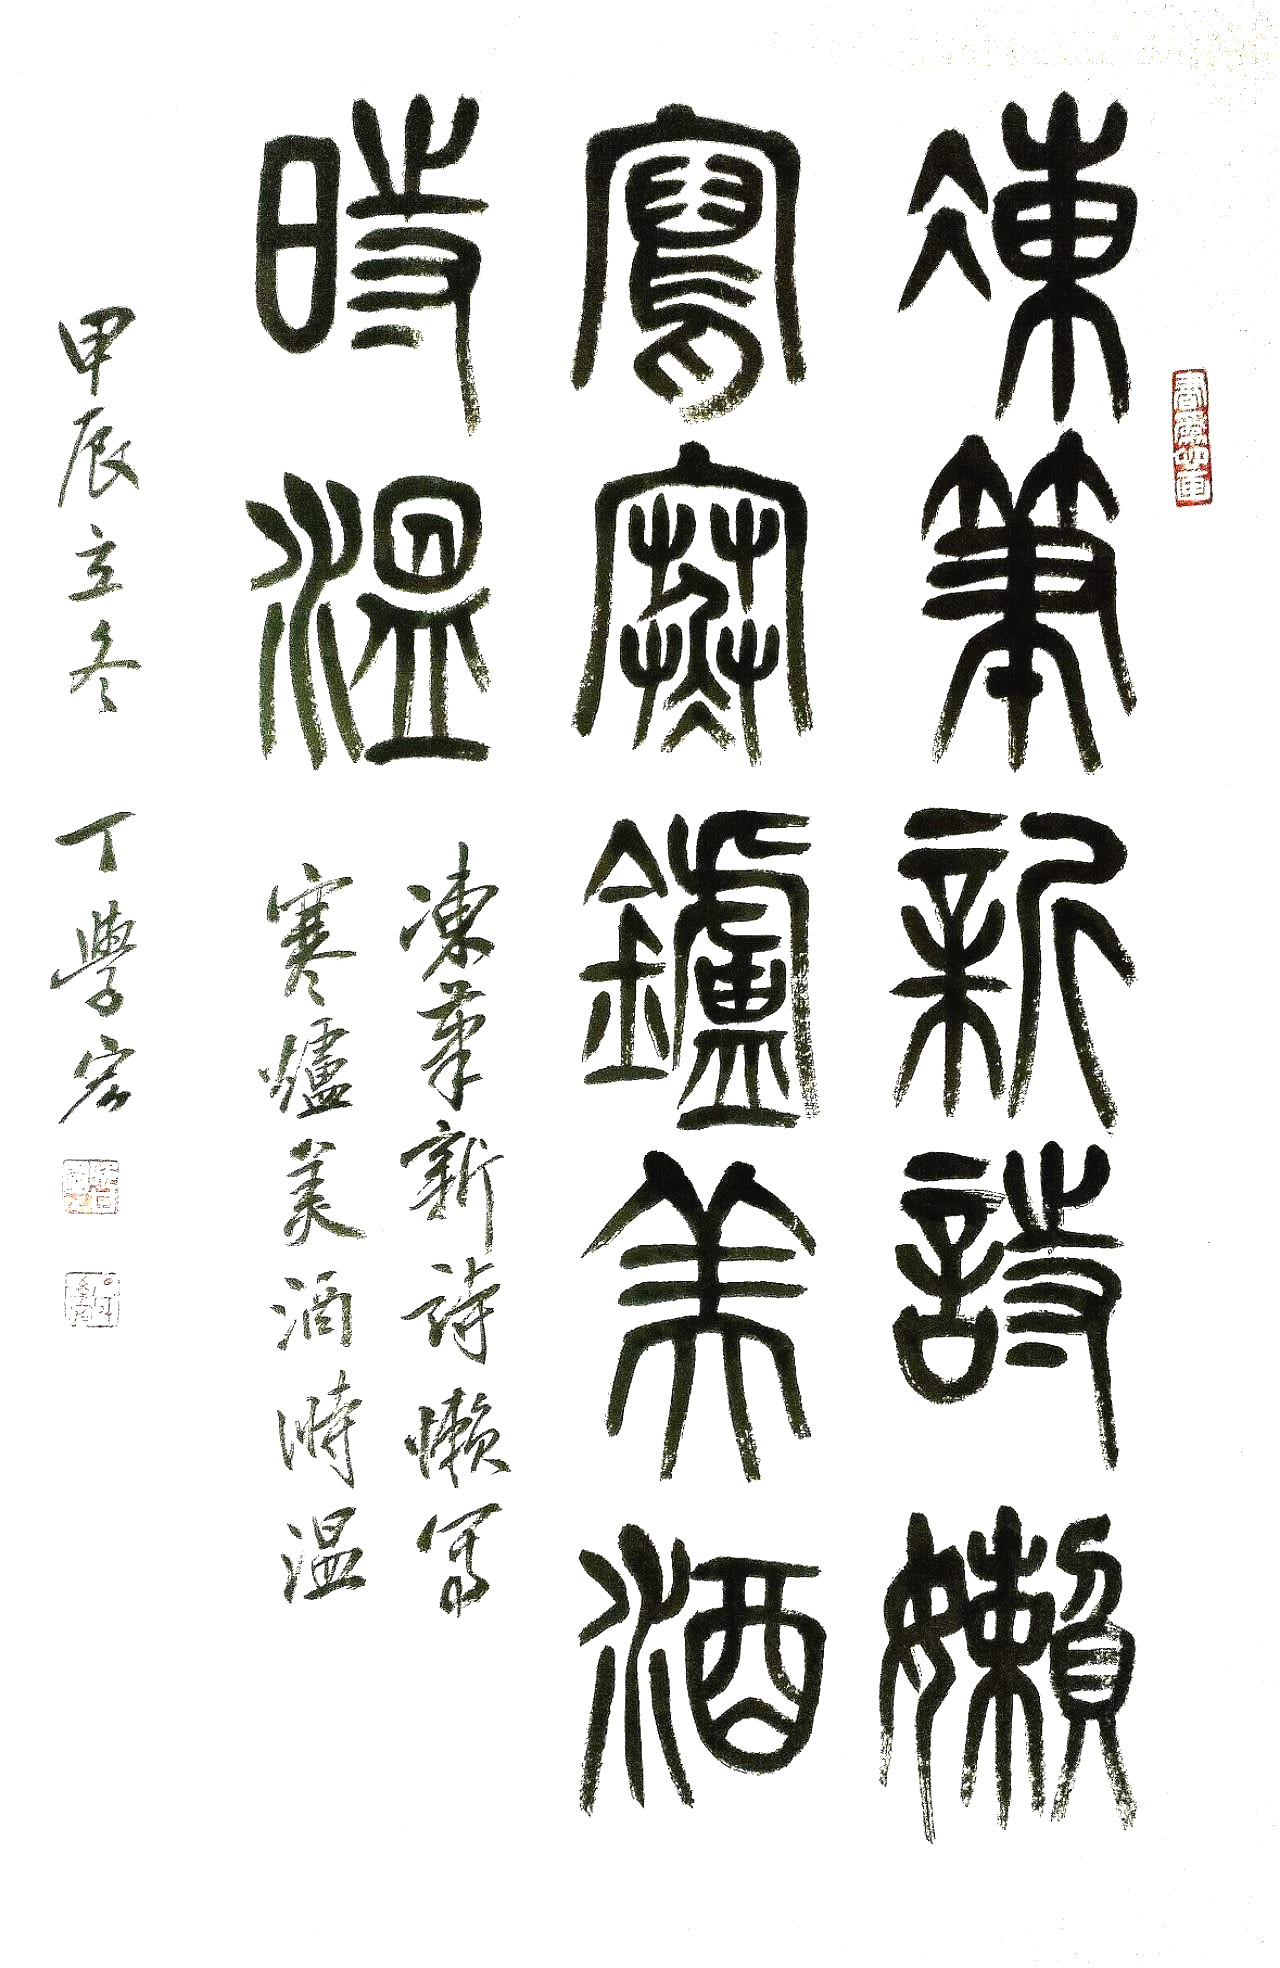 凍筆新詩嬾
寫寒鑪美酒
時溫
凍筆新詩懶寫
寒爐美酒時温
甲辰立冬 丁學宏